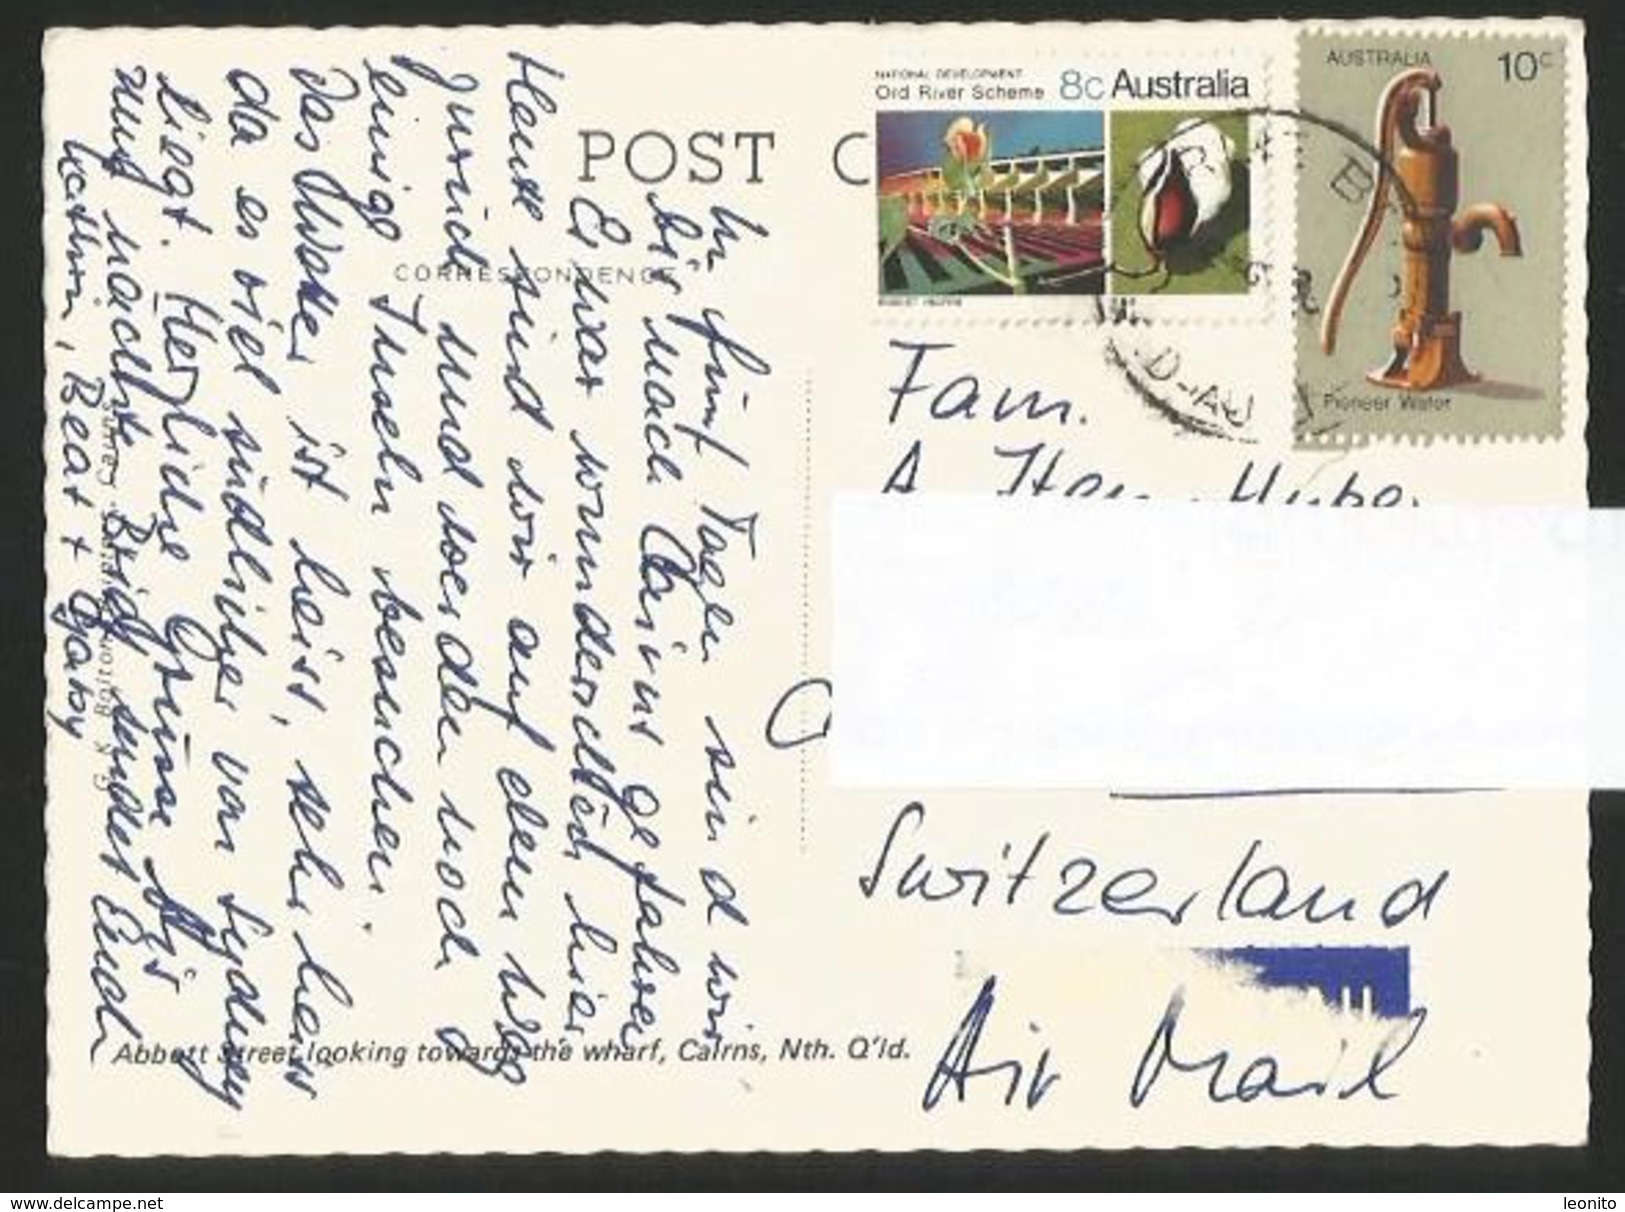 POST C
CORRESPONDENCE
NATIONAL DEVELOPMENT
Ord River Scheme 8c Australia
AUSTRALIA 10c
Pioneer Water
In fünf Tagen sind wir
bis nach Cairns gefahren
Es war wunderschön hier.
Heute sind wir auf dem Weg
zurück und werden noch
einige Inseln besuchen.
Das Wetter ist heiss, sehr heiss
da es viel südlicher von Sydney
liegt. Herzliche Grüsse bis
zum nächsten Brief sendet Euch
Kathrin, Beat + Gaby
Fam.
A.
Switzerland
Air Mail
Abbott Street looking towards the wharf, Cairns, Nth. Q'ld.
leonito